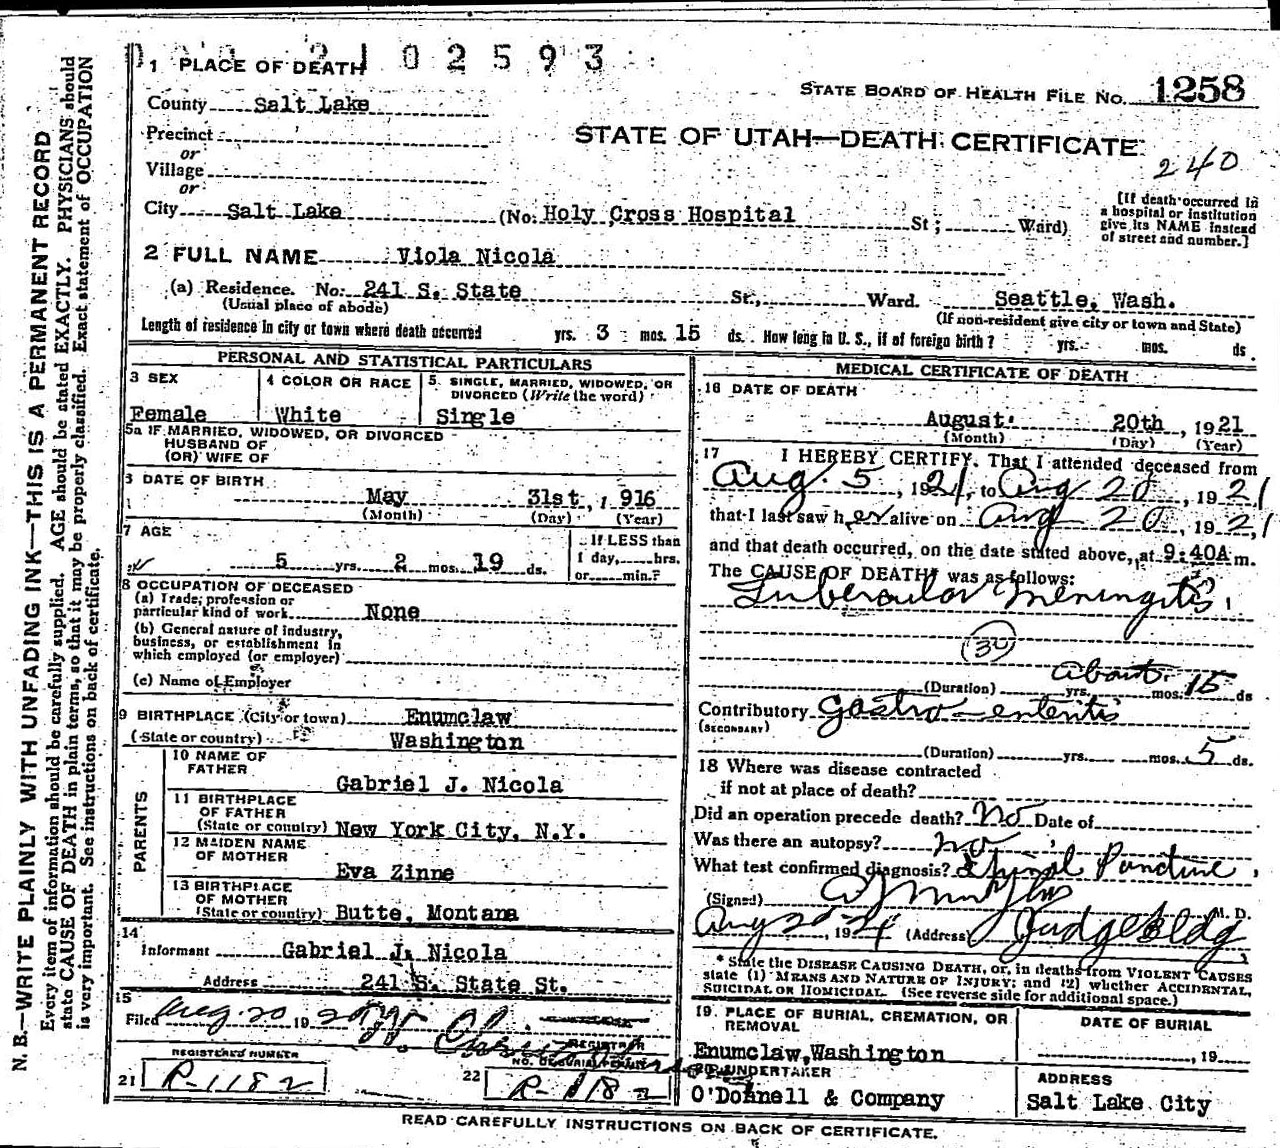 2102593
1 PLACE OF DEATH
STATE BOARD OF HEALTH FILE NO. 1258
County Salt Lake
STATE OF UTAH—DEATH CERTIFICATE
240
Precinct
or
Village
or
City Salt Lake (No. Holy Cross Hospital St; Ward)
[If death occurred in
a hospital or institution
give its NAME instead
of street and number.]
2 FULL NAME Viola Nicola
(a) Residence. No. 241 S. State St., Ward. Seattle, Wash.
(Usual place of abode) (If non-resident give city or town and State)
Length of residence in city or town where death occurred yrs. 3 mos. 15 ds. How long in U. S., if of foreign birth? yrs. mos. ds.
PERSONAL AND STATISTICAL PARTICULARS
3 SEX
Female
4 COLOR OR RACE
White
5. SINGLE, MARRIED, WIDOWED, OR
DIVORCED (Write the word)
Single
5a IF MARRIED, WIDOWED, OR DIVORCED
HUSBAND OF
(OR) WIFE OF
DATE OF BIRTH
May 31st, 1916
(Month) (Day) (Year)
7 AGE
5 yrs. 2 mos. 19 ds.
If LESS than
1 day, hrs.
or min.?
8 OCCUPATION OF DECEASED
(a) Trade, profession or
particular kind of work None
(b) General nature of industry,
business, or establishment in
which employed (or employer)
(c) Name of Employer
9 BIRTHPLACE (City or town) Enumclaw
(State or country) Washington
PARENTS
10 NAME OF
FATHER
Gabriel J. Nicola
11 BIRTHPLACE
OF FATHER
(State or country) New York City, N.Y.
12 MAIDEN NAME
OF MOTHER
Eva Zinne
13 BIRTHPLACE
OF MOTHER
(State or country) Butte, Montana
14
Informant Gabriel J. Nicola
Address 241 S. State St.
15
Filed Aug. 20 19
REGISTRAR
REGISTERED NUMBER
21 R-1182
NO. OF BURIAL PERMIT
22 R-1182
MEDICAL CERTIFICATE OF DEATH
16 DATE OF DEATH
August 20th, 1921
(Month) (Day) (Year)
17 I HEREBY CERTIFY, That I attended deceased from
Aug. 5, 1921, to Aug 20, 1921
that I last saw her alive on Aug 20, 1921
and that death occurred, on the date stated above, at 9:40A m.
The CAUSE OF DEATH* was as follows:
Tubercular Meningitis
30
about
(Duration) yrs. mos. 15 ds
Contributory Gastro-enteritis
(SECONDARY)
(Duration) yrs. mos. 5 ds.
18 Where was disease contracted
if not at place of death?
Did an operation precede death? No Date of
Was there an autopsy? no
What test confirmed diagnosis? Spinal Puncture
(Signed) M. D.
Aug 20, 1921 (Address) Judge Bldg
* State the DISEASE CAUSING DEATH, or, in deaths from VIOLENT CAUSES
state (1) MEANS AND NATURE OF INJURY; and (2) whether ACCIDENTAL,
SUICIDAL OR HOMICIDAL. (See reverse side for additional space.)
19. PLACE OF BURIAL, CREMATION, OR
REMOVAL
Enumclaw, Washington
DATE OF BURIAL
, 19
20 UNDERTAKER
O'Donnell & Company
ADDRESS
Salt Lake City
READ CAREFULLY INSTRUCTIONS ON BACK OF CERTIFICATE.
N. B.—WRITE PLAINLY WITH UNFADING INK—THIS IS A PERMANENT RECORD
Every item of information should be carefully supplied. AGE should be stated EXACTLY. PHYSICIANS should
state CAUSE OF DEATH in plain terms, so that it may be properly classified. Exact statement of OCCUPATION
is very important. See instructions on back of certificate.